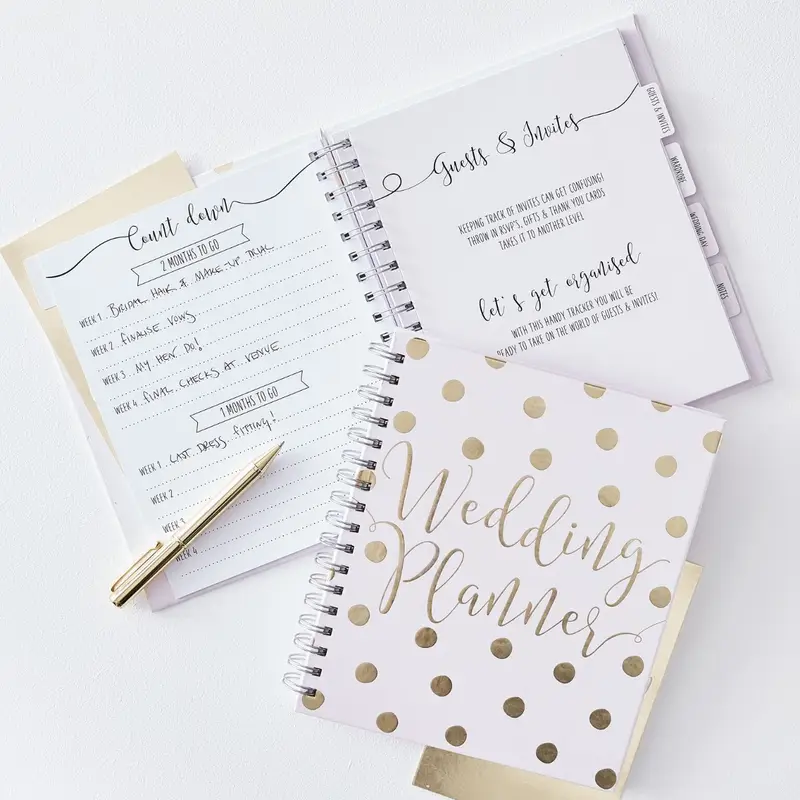 Count down
2 MONTHS TO GO
WEEK 1 BRIDAL HAIR & MAKE-UP TRIAL
WEEK 2 FINALISE VOWS
WEEK 3 MY HEN DO!
WEEK 4 FINAL CHECKS AT VENUE
1 MONTHS TO GO
WEEK 1 LAST DRESS FITTING!
WEEK 2
WEEK 3
WEEK 4
Guests & Invites
KEEPING TRACK OF INVITES CAN GET CONFUSING!
THROW IN RSVP'S, GIFTS & THANK YOU CARDS
TAKES IT TO ANOTHER LEVEL
let's get organised
WITH THIS HANDY TRACKER YOU WILL BE
READY TO TAKE ON THE WORLD OF GUESTS & INVITES!
GUESTS & INVITES
WARDROBE
WEDDING DAY
NOTES
Wedding
Planner